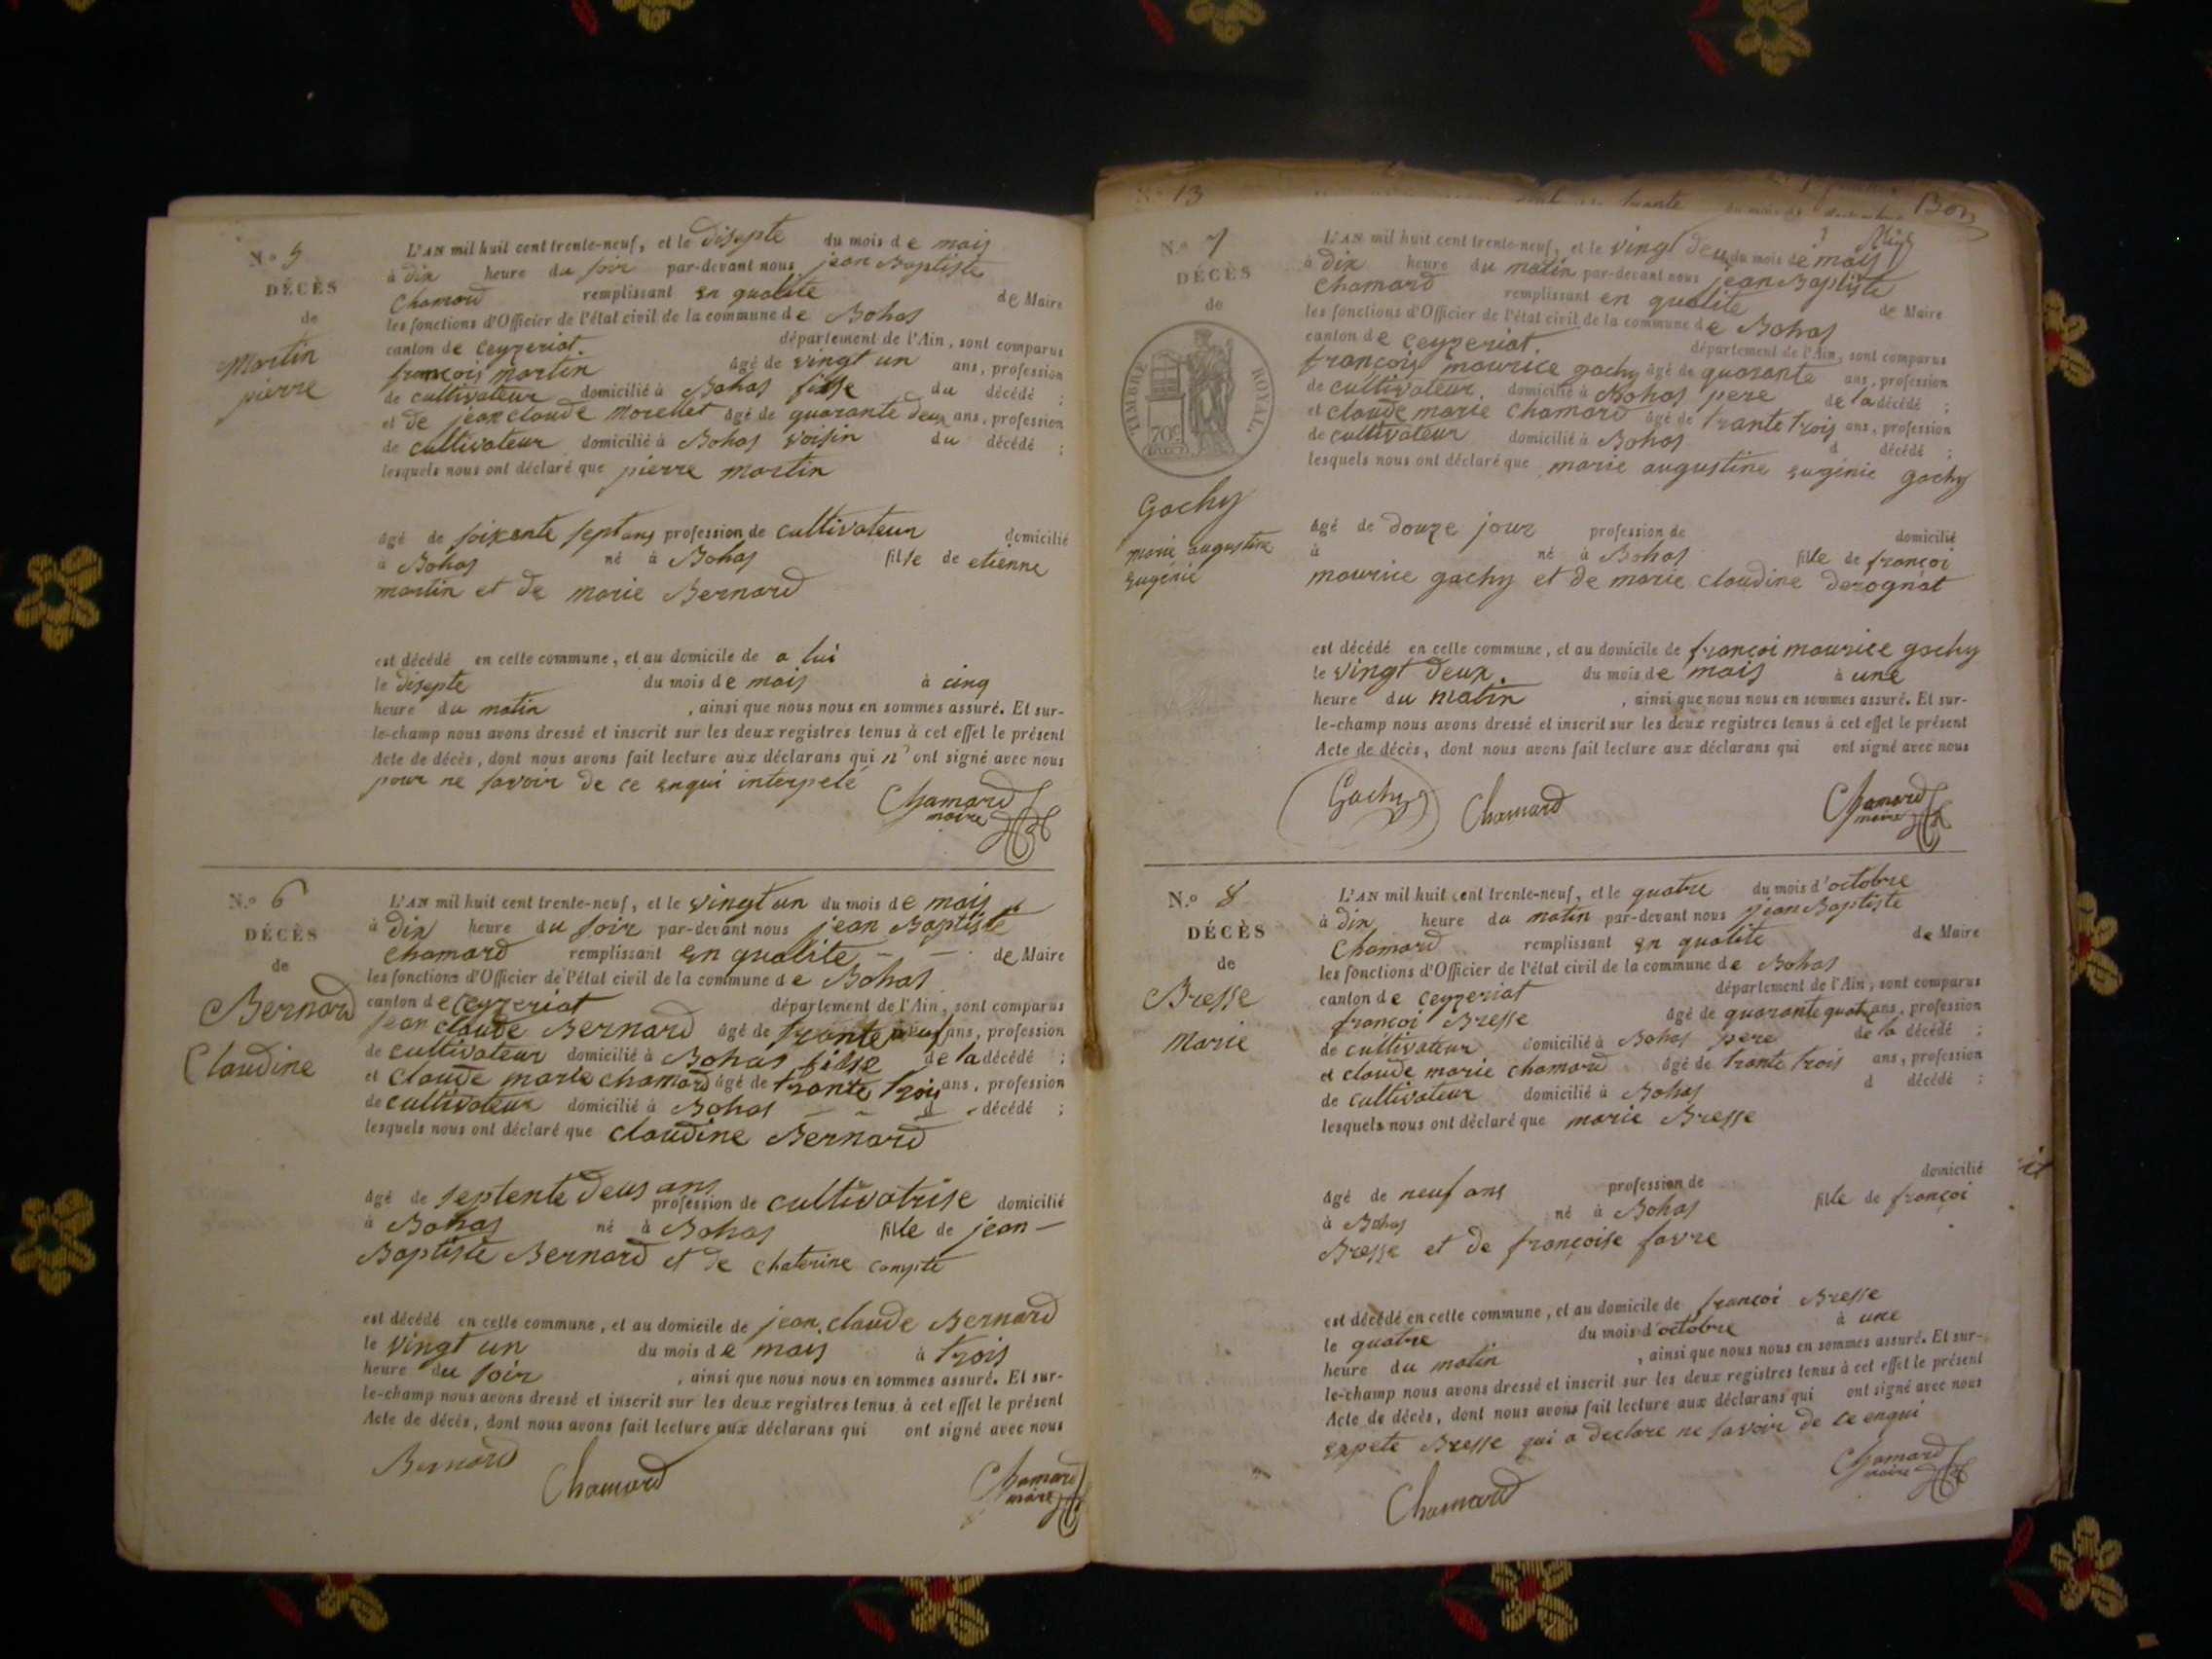 N.º 5
DÉCÈS
de
Martin
pierre
L'AN mil huit cent trente-neuf, et le disepte du mois de mais
à dix heure du soir par-devant nous jean Baptiste
Chamard remplissant en qualite de Maire
les fonctions d'Officier de l'état civil de la commune de Bohas
canton de Ceyzeriat. département de l'Ain, sont comparus
francois martin âgé de vingt un ans, profession
de cultivateur domicilié à Bohas filse du décédé ;
et de jean claude morellet âgé de quarante deux ans, profession
de cultivateur domicilié à Bohas voisin du décédé ;
lesquels nous ont déclaré que pierre martin
âgé de soixente sept ans profession de cultivateur domicilié
à Bohas né à Bohas filse de etienne
martin et de marie Bernard
est décédé en celle commune, et au domicile de a lui
le disepte du mois de mais à cinq
heure du matin , ainsi que nous nous en sommes assuré. Et sur-
le-champ nous avons dressé et inscrit sur les deux registres tenus à cet effet le présent
Acte de décès, dont nous avons fait lecture aux déclarans qui n'ont signé avec nous
pour ne savoir de ce enqui interpelé
Chamard
maire
N.º 6
DÉCÈS
de
Bernard
Claudine
L'AN mil huit cent trente-neuf, et le vingt un du mois de mais
à dix heure du soir par-devant nous jean Baptiste
Chamard remplissant en qualite de Maire
les fonctions d'Officier de l'état civil de la commune de Bohas
canton de Ceyzeriat département de l'Ain, sont comparus
jean claude Bernard âgé de trante neuf ans, profession
de cultivateur domicilié à Bohas filse de la décédé ;
et claude marie chamard âgé de trante trois ans, profession
de cultivateur domicilié à Bohas d décédé ;
lesquels nous ont déclaré que claudine Bernard
âgé de septente deus ans profession de cultivatrise domicilié
à Bohas né à Bohas fille de jean
Baptiste Bernard et de chaterine compte
est décédé en celle commune, et au domicile de jean claude Bernard
le vingt un du mois de mais à trois
heure du soir , ainsi que nous nous en sommes assuré. Et sur-
le-champ nous avons dressé et inscrit sur les deux registres tenus à cet effet le présent
Acte de décès, dont nous avons fait lecture aux déclarans qui ont signé avec nous
Bernard
Chamard
Chamard
maire
N.º 13
N.º 7
DÉCÈS
de
TIMBRE ROYAL.
70c
Gachy
marie augustine
eugénie
L'AN mil huit cent trente-neuf, et le vingt deux du mois de mais
à dix heure du matin par-devant nous jean Baptiste
Chamard remplissant en qualite de Maire
les fonctions d'Officier de l'état civil de la commune de Bohas
canton de Ceyzeriat. département de l'Ain, sont comparus
françois maurice gachy âgé de quarante ans, profession
de cultivateur. domicilié à Bohas pere de la décédé ;
et claude marie chamard âgé de trante trois ans, profession
de cultivateur domicilié à Bohas d décédé ;
lesquels nous ont déclaré que marie augustine eugénie gachy
âgé de douze jour profession de domicilié
à né à Bohas fille de françoi
maurice gachy et de marie claudine derognat
est décédé en celle commune, et au domicile de françoi maurice gachy
le vingt deux. du mois de mais à une
heure du matin , ainsi que nous nous en sommes assuré. Et sur-
le-champ nous avons dressé et inscrit sur les deux registres tenus à cet effet le présent
Acte de décès, dont nous avons fait lecture aux déclarans qui ont signé avec nous
Gachy
Chamard
Chamard
maire
N.º 8
DÉCÈS
de
Bresse
Marie
L'AN mil huit cent trente-neuf, et le quatre du mois d'octobre
à dix heure du matin par-devant nous jean Baptiste
Chamard remplissant en qualite de Maire
les fonctions d'Officier de l'état civil de la commune de Bohas
canton de Ceyzeriat département de l'Ain, sont comparus
françoi Bresse âgé de quarante quatre ans, profession
de cultivateur domicilié à Bohas pere de la décédé ;
et claude marie chamard âgé de trante trois ans, profession
de cultivateur domicilié à Bohas d décédé ;
lesquels nous ont déclaré que marie Bresse
âgé de neuf ans profession de domicilié
à Bohas né à Bohas fille de françoi
Bresse et de françoise favre
est décédé en celle commune, et au domicile de françoi Bresse
le quatre du mois d'octobre à une
heure du matin , ainsi que nous nous en sommes assuré. Et sur-
le-champ nous avons dressé et inscrit sur les deux registres tenus à cet effet le présent
Acte de décès, dont nous avons fait lecture aux déclarans qui ont signé avec nous
expete Bresse qui a declare ne savoir de ce enqui
Chamard
Chamard
maire